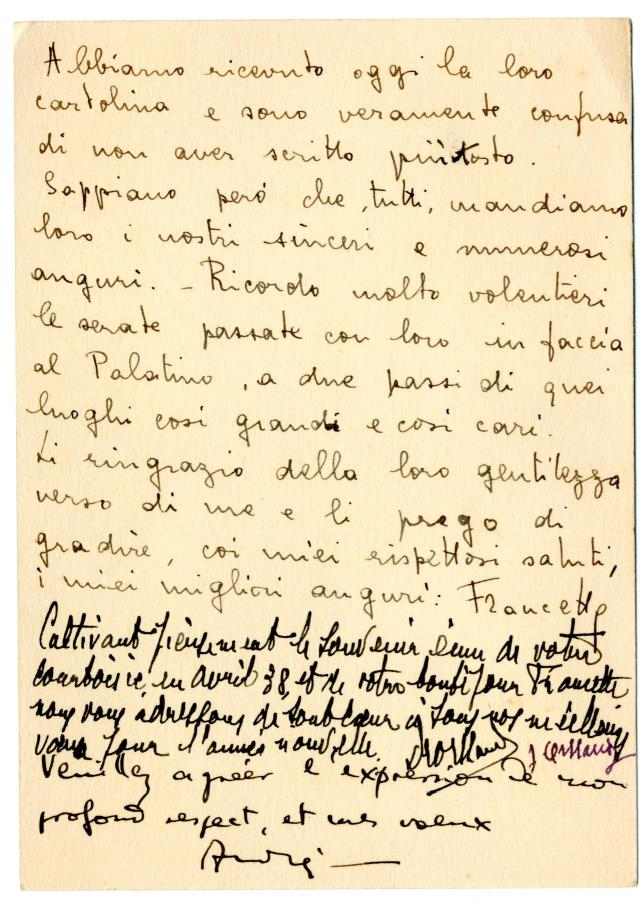 Abbiamo ricevuto oggi la loro
cartolina e sono veramente confusa
di non aver scritto piùtosto.
Sappiano però che, tutti, mandiamo
loro i nostri sinceri e numerosi
auguri. - Ricordo molto volentieri
le serate passate con loro in faccia
al Palatino, a due passi di quei
luoghi così grandi e così cari.
Li ringrazio della loro gentilezza
verso di me e li prego di
gradire, coi miei rispettosi saluti,
i miei migliori auguri: Francette
Cultivant pieusement le souvenir ému de votre
courtoisie, en avril 38, et de votre bonté pour Francette
nous vous adressons de tout cœur à tous nos meilleurs
vœux pour l'année nouvelle.
Veuillez agréer l'expression de mon
profond respect, et mes vœux
André —